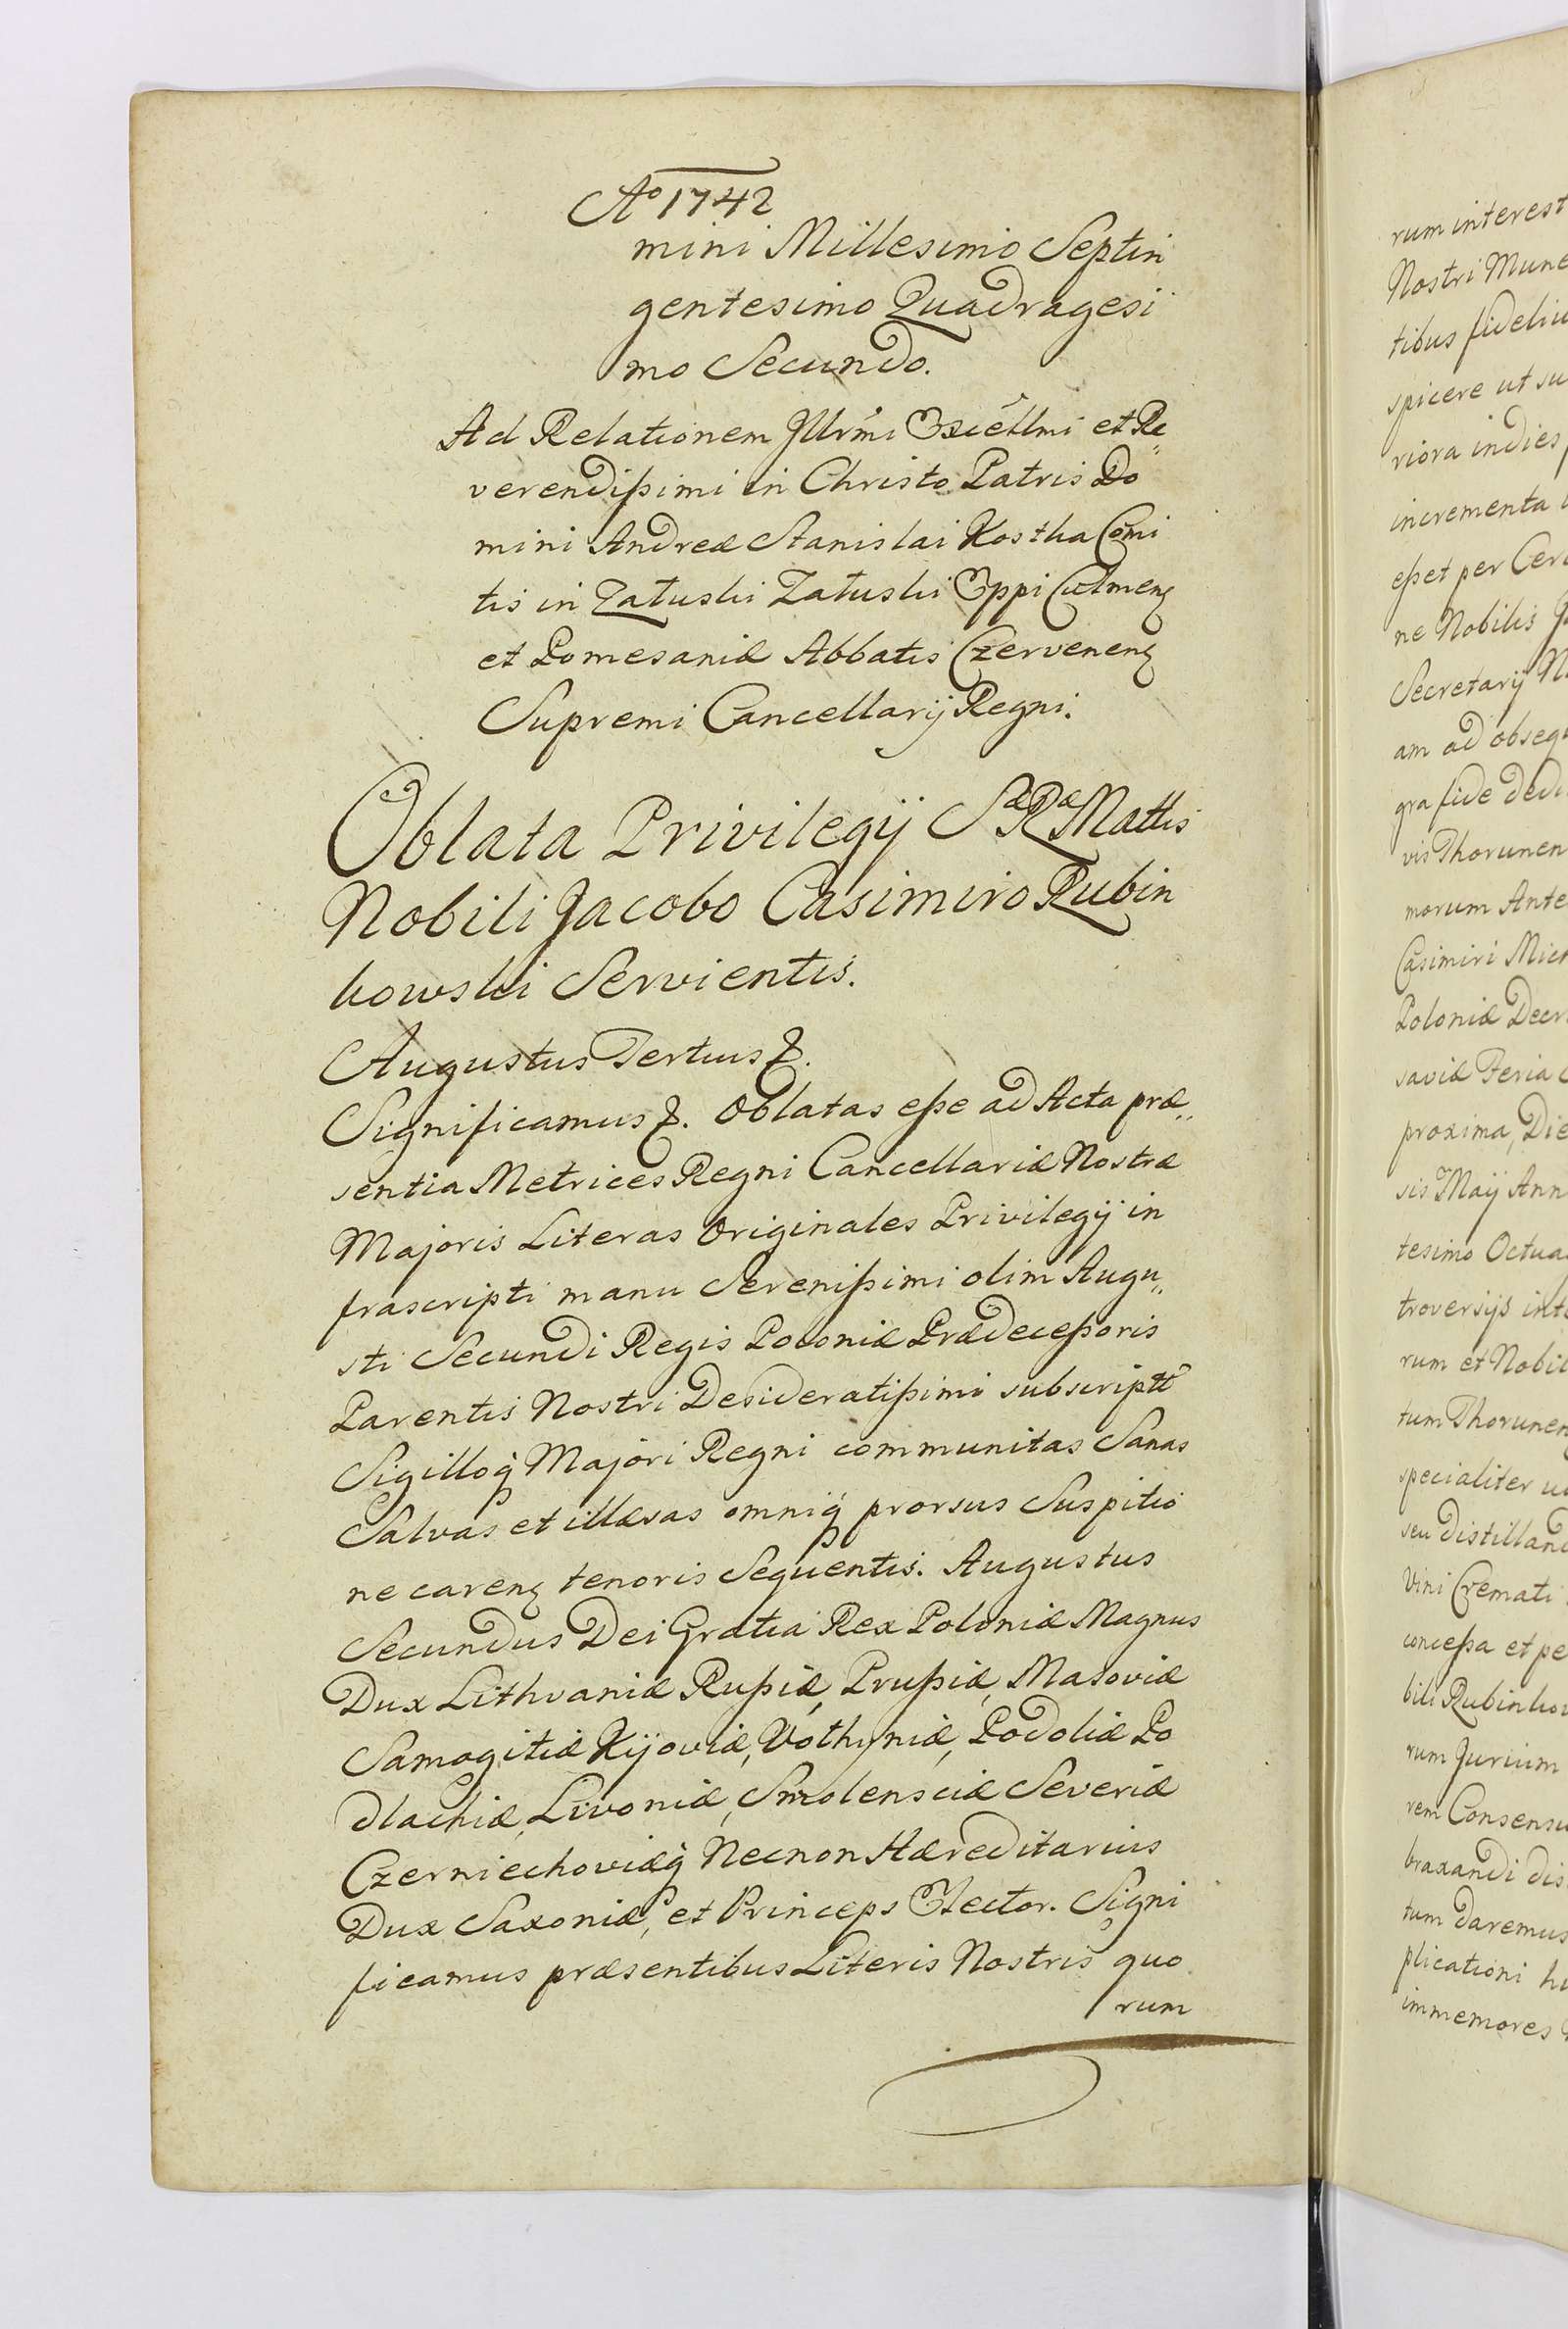 Aº 1742
mini Millesimo Septin
gentesimo Quadragesi
mo Secundo.
Ad Relationem Jllrmi Excellmi et Re„
verendißimi in Christo Patris Do„
mini Andreæ Stanislai Kostka Comi
tis in Załuski Załuski Eppi Culmenʒ
et Pomesaniæ Abbatis Czervenenʒ
Supremi Cancellarij Regni.
Oblata Privilegij Sæ Ræ Mattis
Nobili Jacobo Casimiro Rubin
kowski Servientis.
Augustus Tertius &.
Significamus &. Oblatas eße ad Acta præ„
sentia Metrices Regni Cancellariæ Nostræ
Majoris Literas Originales Privilegij in
frascripti manu Serenißimi olim Augu„
sti Secundi Regis Poloniæ Prædeceßoris
Parentis Nostri Desideratißimi subscriptt
Sigilloq̃ Majori Regni communitas Sanas
Salvas et illæsas omniq̃ prorsus Suspitio
ne carenʒ tenoris Sequentis. Augustus
Secundus Dei Gratia Rex Poloniæ Magnus
Dux Lithvaniæ Rußiæ, Prußiæ, Masoviæ
Samogitiæ Kijoviæ, Volhyniæ, Podoliæ Po
dlachiæ, Livoniæ, Smolensciæ Severiæ
Czerniechoviæq̃ Necnon Hæreditarius
Dux Saxoniæ, et Princeps Elector. Signi
ficamus præsentibus Literis Nostris quo
rum
rum interest
Nostri Mune
tibus fideliu
spicere ut su
riora indies
incrementa
eßet per Cer
ne Nobilis
Secretarij
am ad obsequ
gra fide dedi
vis Thorunen
morum Ante
Casimiri Mich
Poloniæ Decr
saviæ Feria
proxima, Die
sis Maij Ann
tesimo Octua
troversijs int
rum et Nobil
tum Thorunen
specialiter
seu distilland
Vini Cremati
conceßa et pe
bili Rubinkow
rum Jurium
rem Consensu
braxandi dis
tum daremus
plicationi hu
immemores